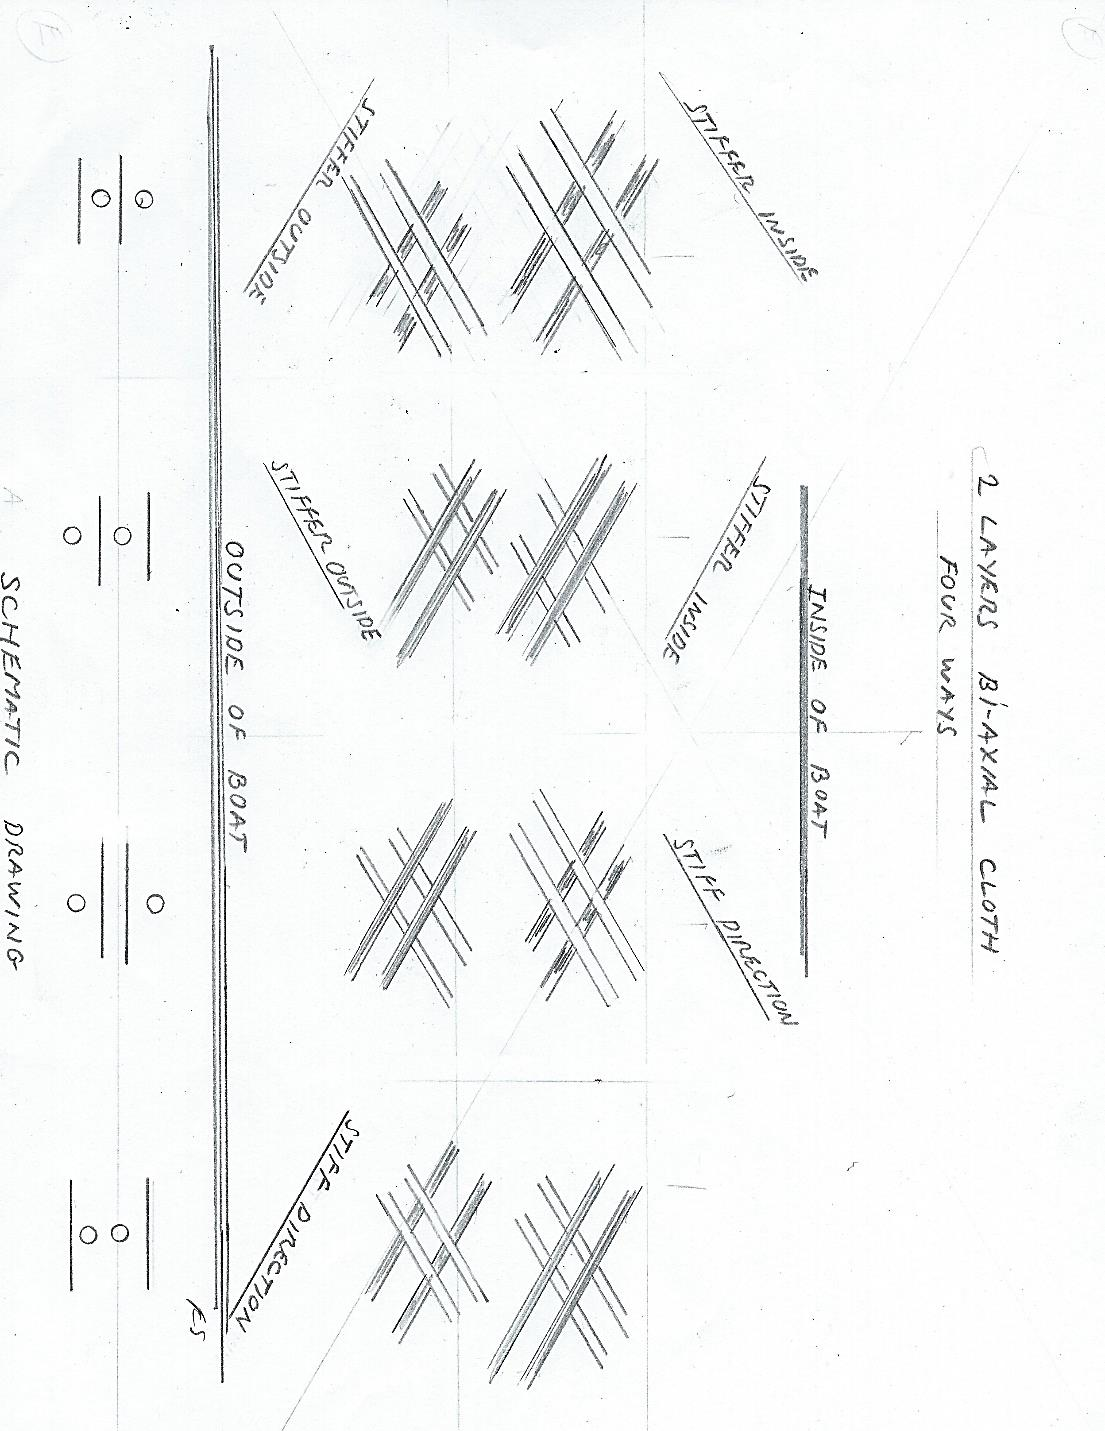 2 LAYERS BI-AXIAL CLOTH
FOUR WAYS
INSIDE OF BOAT
STIFFER INSIDE
STIFFER INSIDE
STIFF DIRECTION
STIFFER OUTSIDE
STIFFER OUTSIDE
STIFF DIRECTION
OUTSIDE OF BOAT
A SCHEMATIC DRAWING
E